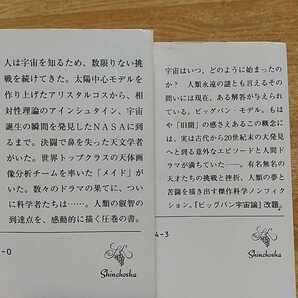 人は宇宙を知るため、数限りない挑
戦を続けてきた。太陽中心モデルを
作り上げたアリスタルコスから、相
対性理論のアインシュタイン、宇宙
誕生の瞬間を発見したNASAに到
るまで。決闘で鼻を失った天文学者
がいた。世界トップクラスの天体画
像分析チームを率いた「メイド」が
いた。数々のドラマの果てに、つい
に科学者たちは……。人類の叡智の
到達点を、感動的に描く圧巻の書。
-0
Shinchosha
宇宙はいつ、どのように始まったの
か? 人類永遠の謎とも言えるその
問いには現在、ある解答が与えられ
ている。ビッグバン・モデル。もは
や「旧聞」の感さえあるこの概念に
は、実は古代から20世紀末の大発見
へと到る意外なエピソードと人間ド
ラマが満ちていた――。有名無名の
天才たちの挑戦と挫折、人類の夢と
苦闘を描き出す傑作科学ノンフィク
ション。『ビッグバン宇宙論』改題。
4-3
Shinchosha